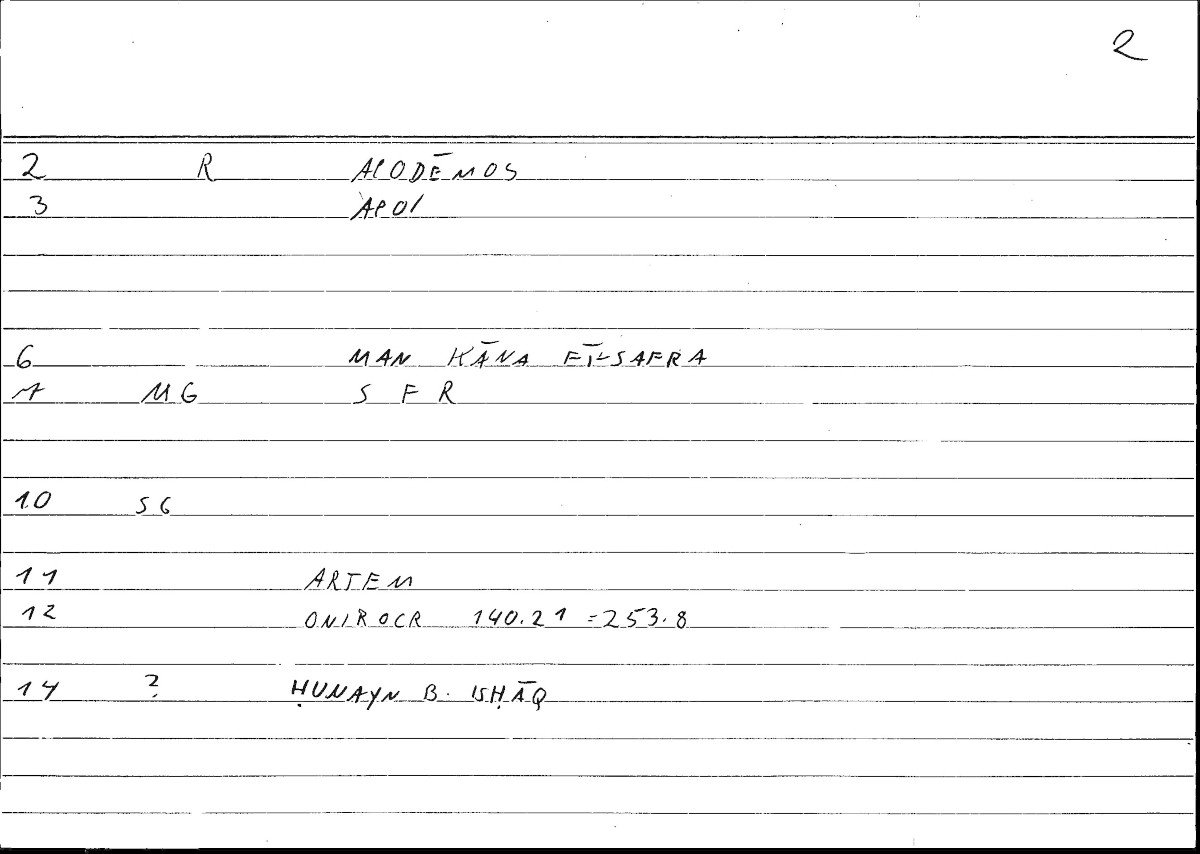 2
2 R APODĒMOS
3 APOI
6 MAN KĀNA FĪ-SAFRA
7 MG S F R
10 SG
11 ARTEM
12 ONIROCR 140.21 =253.8
14 ? ḤUNAYN B. ISḤĀQ